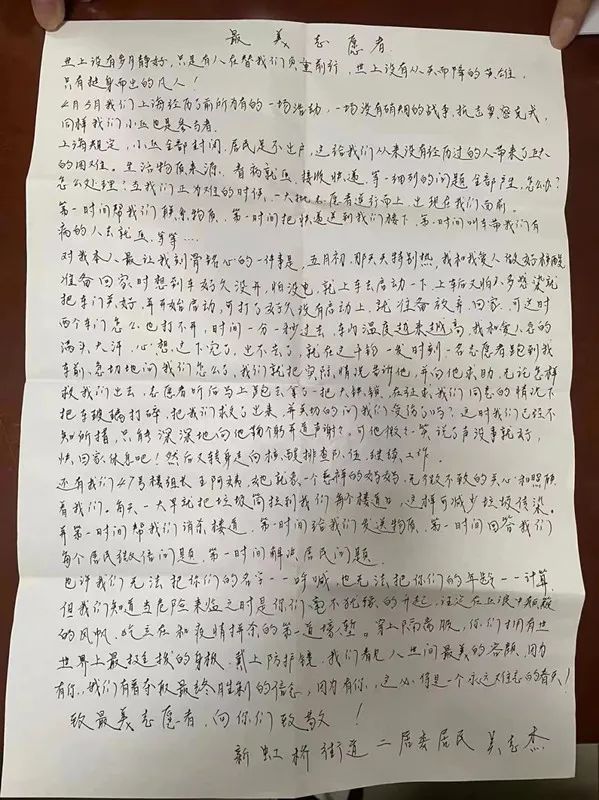 最美志愿者
世上没有岁月静好，只是有人在替我们负重前行，世上没有从天而降的英雄，
只有挺身而出的凡人！
4月5月我们上海经历了前所有的一场活动，一场没有硝烟的战争，抗击奥密克戎，
同样我们小区也是参与者。
上海规定，小区全部封闭，居民足不出户，这给我们从来没有经历过的人带来了巨大
的困难。生活物质来源、看病就医、接收快递，等一细列的问题全部产生，怎么办？
怎么处理？在我们正为难的时候，一大批志愿者逆行而上，出现在我们面前。
第一时间帮我们联系物质，第一时间把快递送到我们楼下，第一时间叫车带我们有
病的人去就医，等等…
对我本人最让我刻骨铭心的一件事是，五月初，那天天特别热，我和我爱人做好核酸
准备回家，时想到车好久没开，怕没电，就上车去启动一下，上车后又怕人多感染就
把车门关好，并开始启动，可打了好久没有启动上，就准备放弃，回家，可这时
两个车门怎么也打不开，时间一分一秒过去，车内温度越来越高，我和爱人急的
满头大汗，心想，这下完了，出不去了，就在这千钧一发时刻一名志愿者跑到我
车前，急切地问我们怎么了，我们就把实际情况告诉他，并向他求助，无论怎样
救我们出去，志愿者听后马上跑去拿了一把大铁锒，在征求我们同志的情况下
把车玻璃打碎，把我们救了出来，并关切的问我们受伤了吗？这时我们已经不
知所措，只能深深地向他鞠个躬并道声谢谢，可他微微一笑，说了声没事就好，
快回家休息吧！然后又转身走向核酸排查队伍，继续工作。
还有我们47号楼组长王阿姨，她也就象一个慈祥的妈妈，无微不致的关心和照顾
着我们。每天一大早就把垃圾筒拉到我们每个楼道口，这样可减少垃圾传染。
并第一时间帮我们消杀楼道，第一时间给我们发送物质，第一时间回答我们
每个居民微信问题，第一时间解决居民问题。
也许我们无法把你们的名字一一呼喊，也无法把你们的年龄一一计算，
但我们知道当危险来临之时是你们毫不犹豫的升起，注定在上浪中颠簸
的风帆，屹立在和疫情拼杀的第一道接堑。穿上隔离服，你们拥有世
世界上最挺拔的身板，戴上防护镜，我们看见人世间最美的容颜，因为
有你，我们有着夺取最终胜利的信念，因为有你，这必将是一个永远难忘的春天！
致最美志愿者，向你们致敬！
新虹桥街道二居委居民 吴志杰